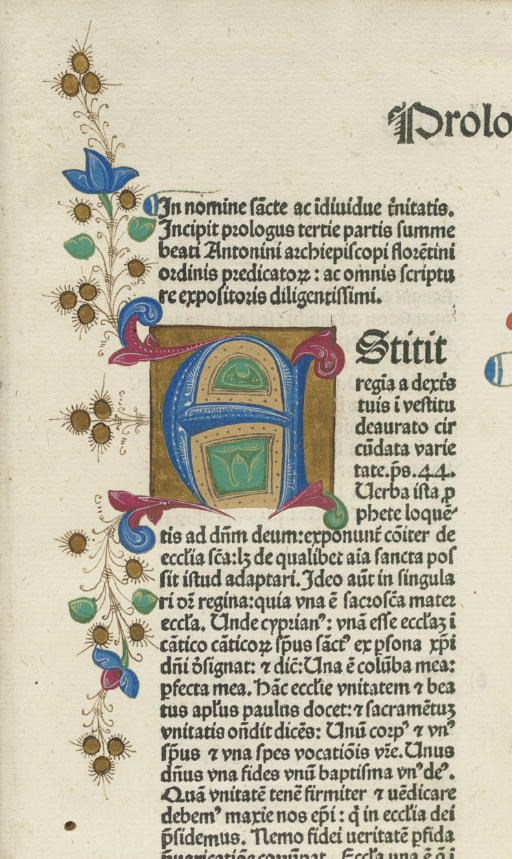 Prolo
In nomine sācte ac īdiuidue t̄nitatis.
Incipit prologus tertie partis summe
beati Antonini archiepiscopi florētini
ordinis predicatoꝝ : ac omnis scriptu
re expositoris diligentissimi.
AStitit
regīa a dext̄s
tuis ī vestitu
deaurato cir
cūdata varie
tate.p̄s.44.
Uerba ista ꝓ
phete loquē
tis ad dn̄m deum:exponunt̄ cōiter de
eccl̄ia sc̄a:lꝫ de qualibet aīa sancta pos
sit istud adaptari. Ideo aūt in singula
ri dꝛ regina:quia vna ē sacrosc̄a mater
eccl̄a. Unde cyprianꝰ: vnā esse eccl̄aꝫ ī
cātico cāticoꝝ sp̄us sāctꝰ ex ꝑsona xp̄i
dn̄i d̄signat: ⁊ dic̄:Una ē colūba mea:
ꝑfecta mea. Hāc eccl̄ie vnitatem ⁊ bea
tus apl̄us paulus docet:⁊ sacramētuꝫ
vnitatis on̄dit dicēs: Unū corpꝰ ⁊ vnꝰ
sp̄us ⁊ vna spes vocatiōis vr̄e. Unus
dn̄us vna fides vnū baptisma vnꝰ deꝰ.
Quā vnitatē tenē firmiter ⁊ uēdicare
debemꝰ maxīe nos ep̄i : q̇ in eccl̄ia dei
p̄sidemus. Nemo fidei ueritatē ꝑfida